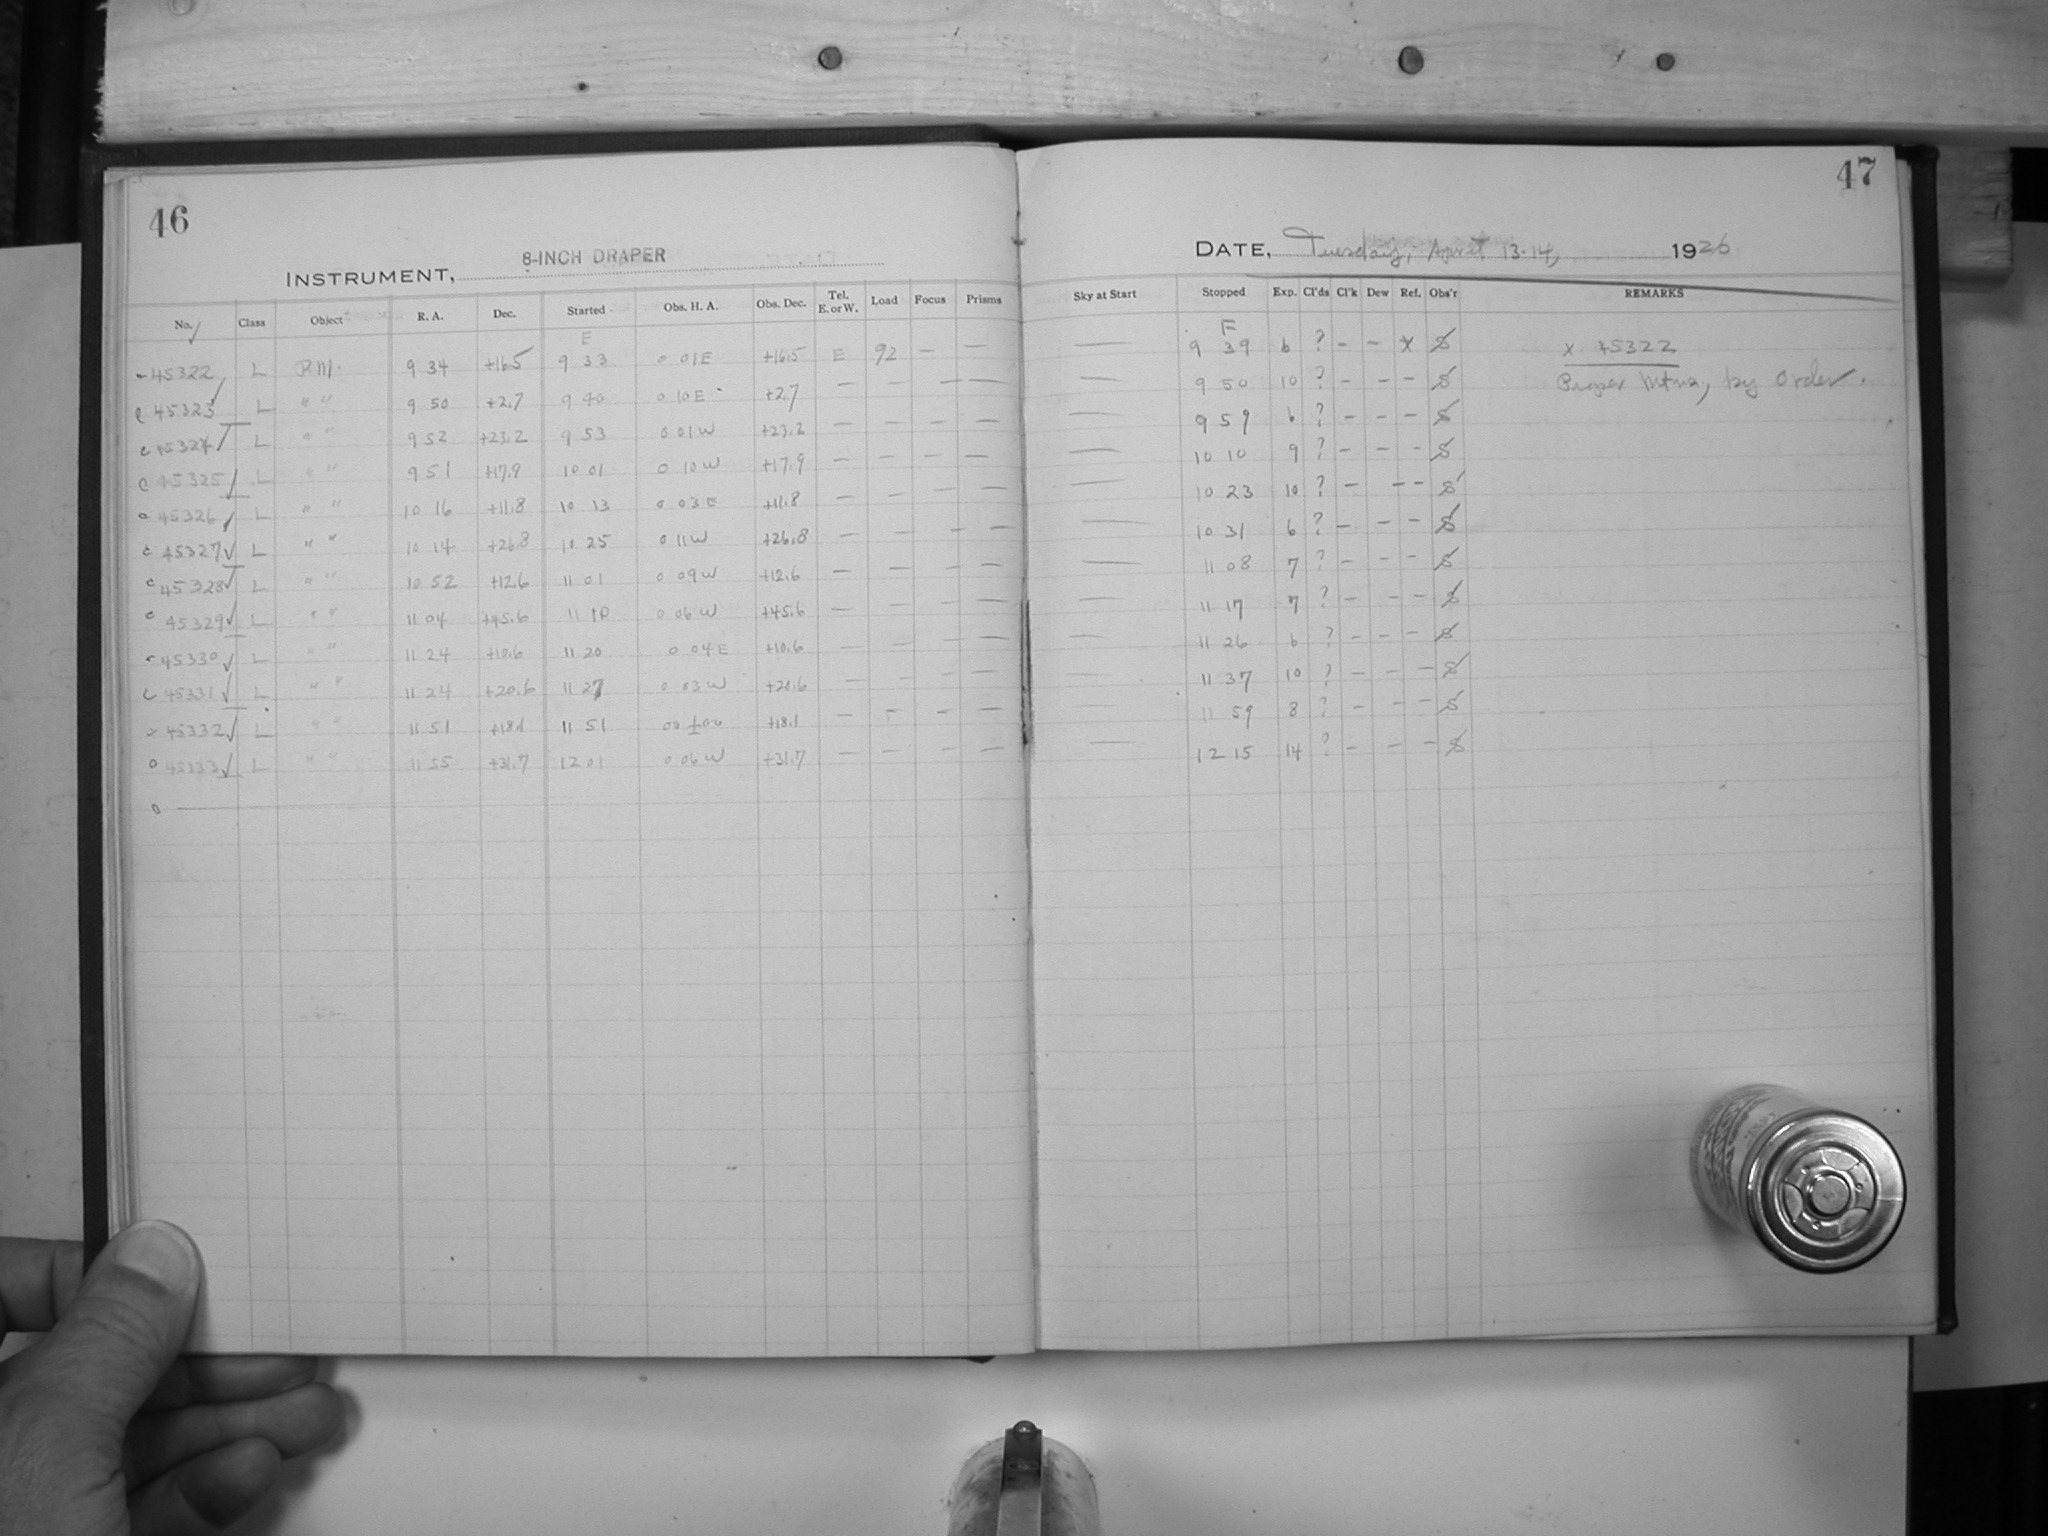 46
INSTRUMENT, 8-INCH DRAPER
No. Class Object R. A. Dec. Started Obs. H. A. Obs. Dec. Tel. E. or W. Load Focus Prisms
E
45322 L R.M. 9 34 +16.5 9 33 0 01 E +16.5 E 92 — —
45323 L " " 9 50 +2.7 9 40 0 10 E +2.7 — — — —
45324 L " " 9 52 +23.2 9 53 0 01 W +23.2 — — — —
45325 L " " 9 51 +17.9 10 01 0 10 W +17.9 — — — —
45326 L " " 10 16 +11.8 10 13 0 03 E +11.8 — — — —
45327 L " " 10 14 +26.8 10 25 0 11 W +26.8 — — — —
45328 L " " 10 52 +12.6 11 01 0 09 W +12.6 — — — —
45329 L " " 11 04 +45.6 11 10 0 06 W +45.6 — — — —
45330 L " " 11 24 +10.6 11 20 0 04 E +10.6 — — — —
45331 L " " 11 24 +20.6 11 27 0 03 W +20.6 — — — —
45332 L " " 11 51 +18.1 11 51 00 ± 00 +18.1 — — — —
45333 L " " 11 55 +31.7 12 01 0 06 W +31.7 — — — —
47
DATE, Tuesday, April 13-14, 1926
Sky at Start Stopped Exp. Cl'ds Cl'k Dew Ref. Obs'r REMARKS
F
— 9 39 6 ? – – x S x 45322
— 9 50 10 ? – – – S Proper by order.
— 9 59 6 ? – – – S
— 10 10 9 ? – – – S
— 10 23 10 ? – – – S
— 10 31 6 ? – – – S
— 11 08 7 ? – – – S
— 11 17 7 ? – – – S
— 11 26 6 ? – – – S
— 11 37 10 ? – – – S
— 11 59 8 ? – – – S
— 12 15 14 ? – – – S